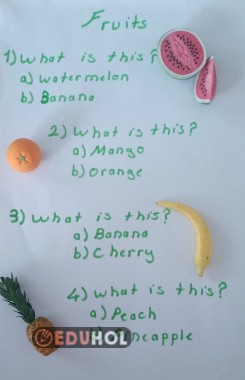 Fruits
1) What is this?
a) watermelon
b) Banana
2) What is this?
a) Mango
b) orange
3) What is this?
a) Banana
b) Cherry
4) What is this?
a) Peach
EDUHOL